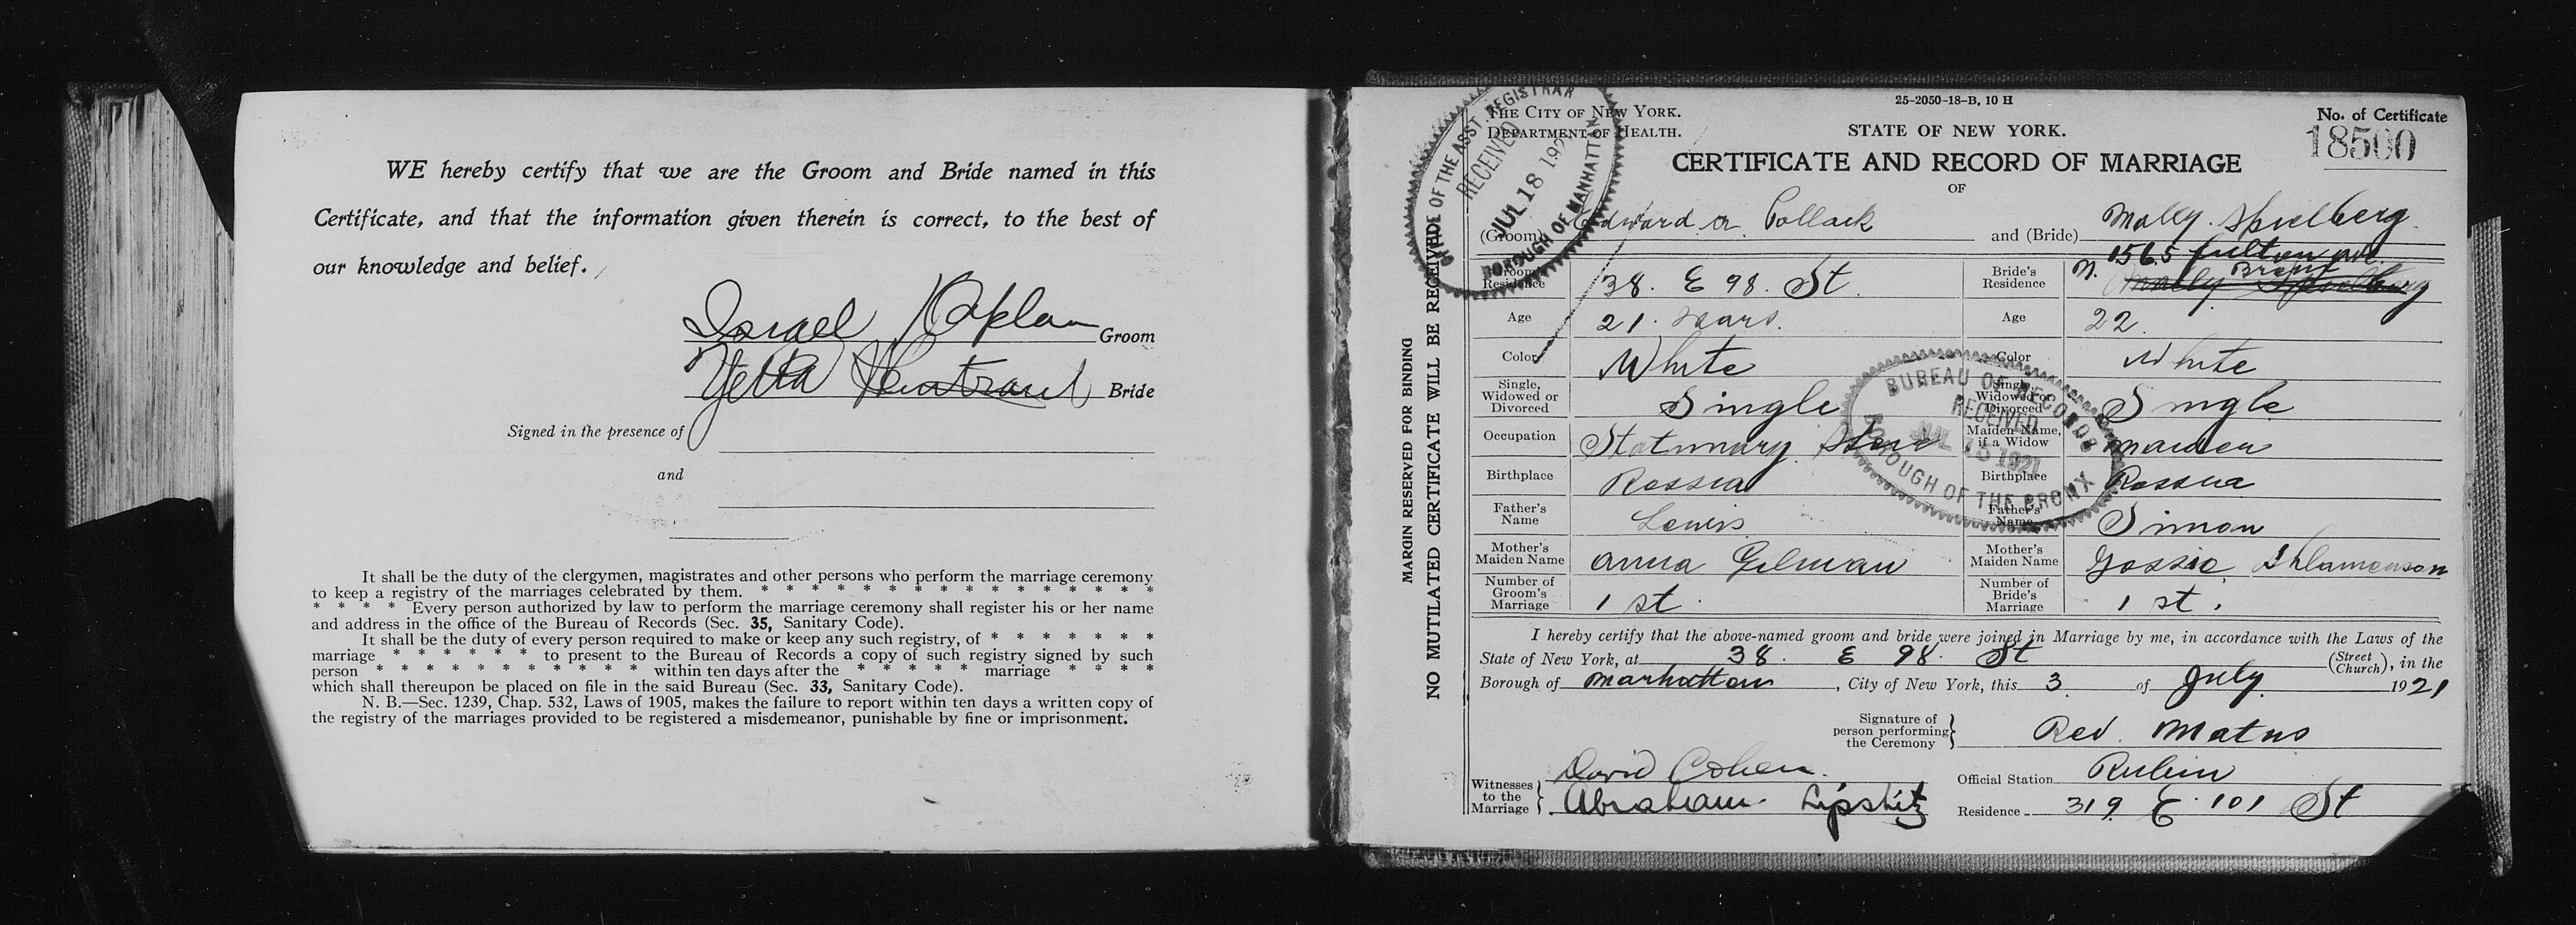 WE hereby certify that we are the Groom and Bride named in this
Certificate, and that the information given therein is correct, to the best of
our knowledge and belief.
Israel Kaplan Groom
Yetta Bride
Signed in the presence of
and
It shall be the duty of the clergymen, magistrates and other persons who perform the marriage ceremony
to keep a registry of the marriages celebrated by them. * * * * * * * * * * * * *
* * * * Every person authorized by law to perform the marriage ceremony shall register his or her name
and address in the office of the Bureau of Records (Sec. 35, Sanitary Code).
It shall be the duty of every person required to make or keep any such registry, of * * * * * * *
marriage * * * * * * to present to the Bureau of Records a copy of such registry signed by such
person * * * * * * * * * * * within ten days after the * * * * * marriage * * * *
which shall thereupon be placed on file in the said Bureau (Sec. 33, Sanitary Code).
N. B.—Sec. 1239, Chap. 532, Laws of 1905, makes the failure to report within ten days a written copy of
the registry of the marriages provided to be registered a misdemeanor, punishable by fine or imprisonment.
MARGIN RESERVED FOR BINDING
NO MUTILATED CERTIFICATE WILL BE RECEIVED.
OFFICE OF THE ASST. REGISTRAR
RECEIVED
JUL 18 192
BOROUGH OF MANHATTAN
25-2050-18-B, 10 H
THE CITY OF NEW YORK.
DEPARTMENT OF HEALTH.
STATE OF NEW YORK.
No. of Certificate
18500
CERTIFICATE AND RECORD OF MARRIAGE
OF
(Groom) Edward a. Pollack and (Bride) Molly Spielberg
Groom's Residence 38. E 98. St. Bride's Residence 1565 fulton ave. Bronx Molly Spielberg
Age 21. Years. Age 22.
Color White Color White
Single, Widowed or Divorced Single Single, Widowed or Divorced Single
Occupation Stationary Store Maiden Name, if a Widow maiden
Birthplace Rossia Birthplace Rossia
Father's Name Lewis Father's Name Simon
Mother's Maiden Name Anna Gelman Mother's Maiden Name Gossie
Number of Groom's Marriage 1 st. Number of Bride's Marriage 1 st.
BUREAU OF RECORDS
RECEIVED
JUL 15 1921
BOROUGH OF THE BRONX
I hereby certify that the above-named groom and bride were joined in Marriage by me, in accordance with the Laws of the
State of New York, at 38. E 98. St (Street Church), in the
Borough of Manhattan, City of New York, this 3 of July 1921
Signature of person performing the Ceremony Rev. Matus
Witnesses to the Marriage David Cohen. Official Station Rubin
Abraham Lipshitz Residence 319 E. 101 St